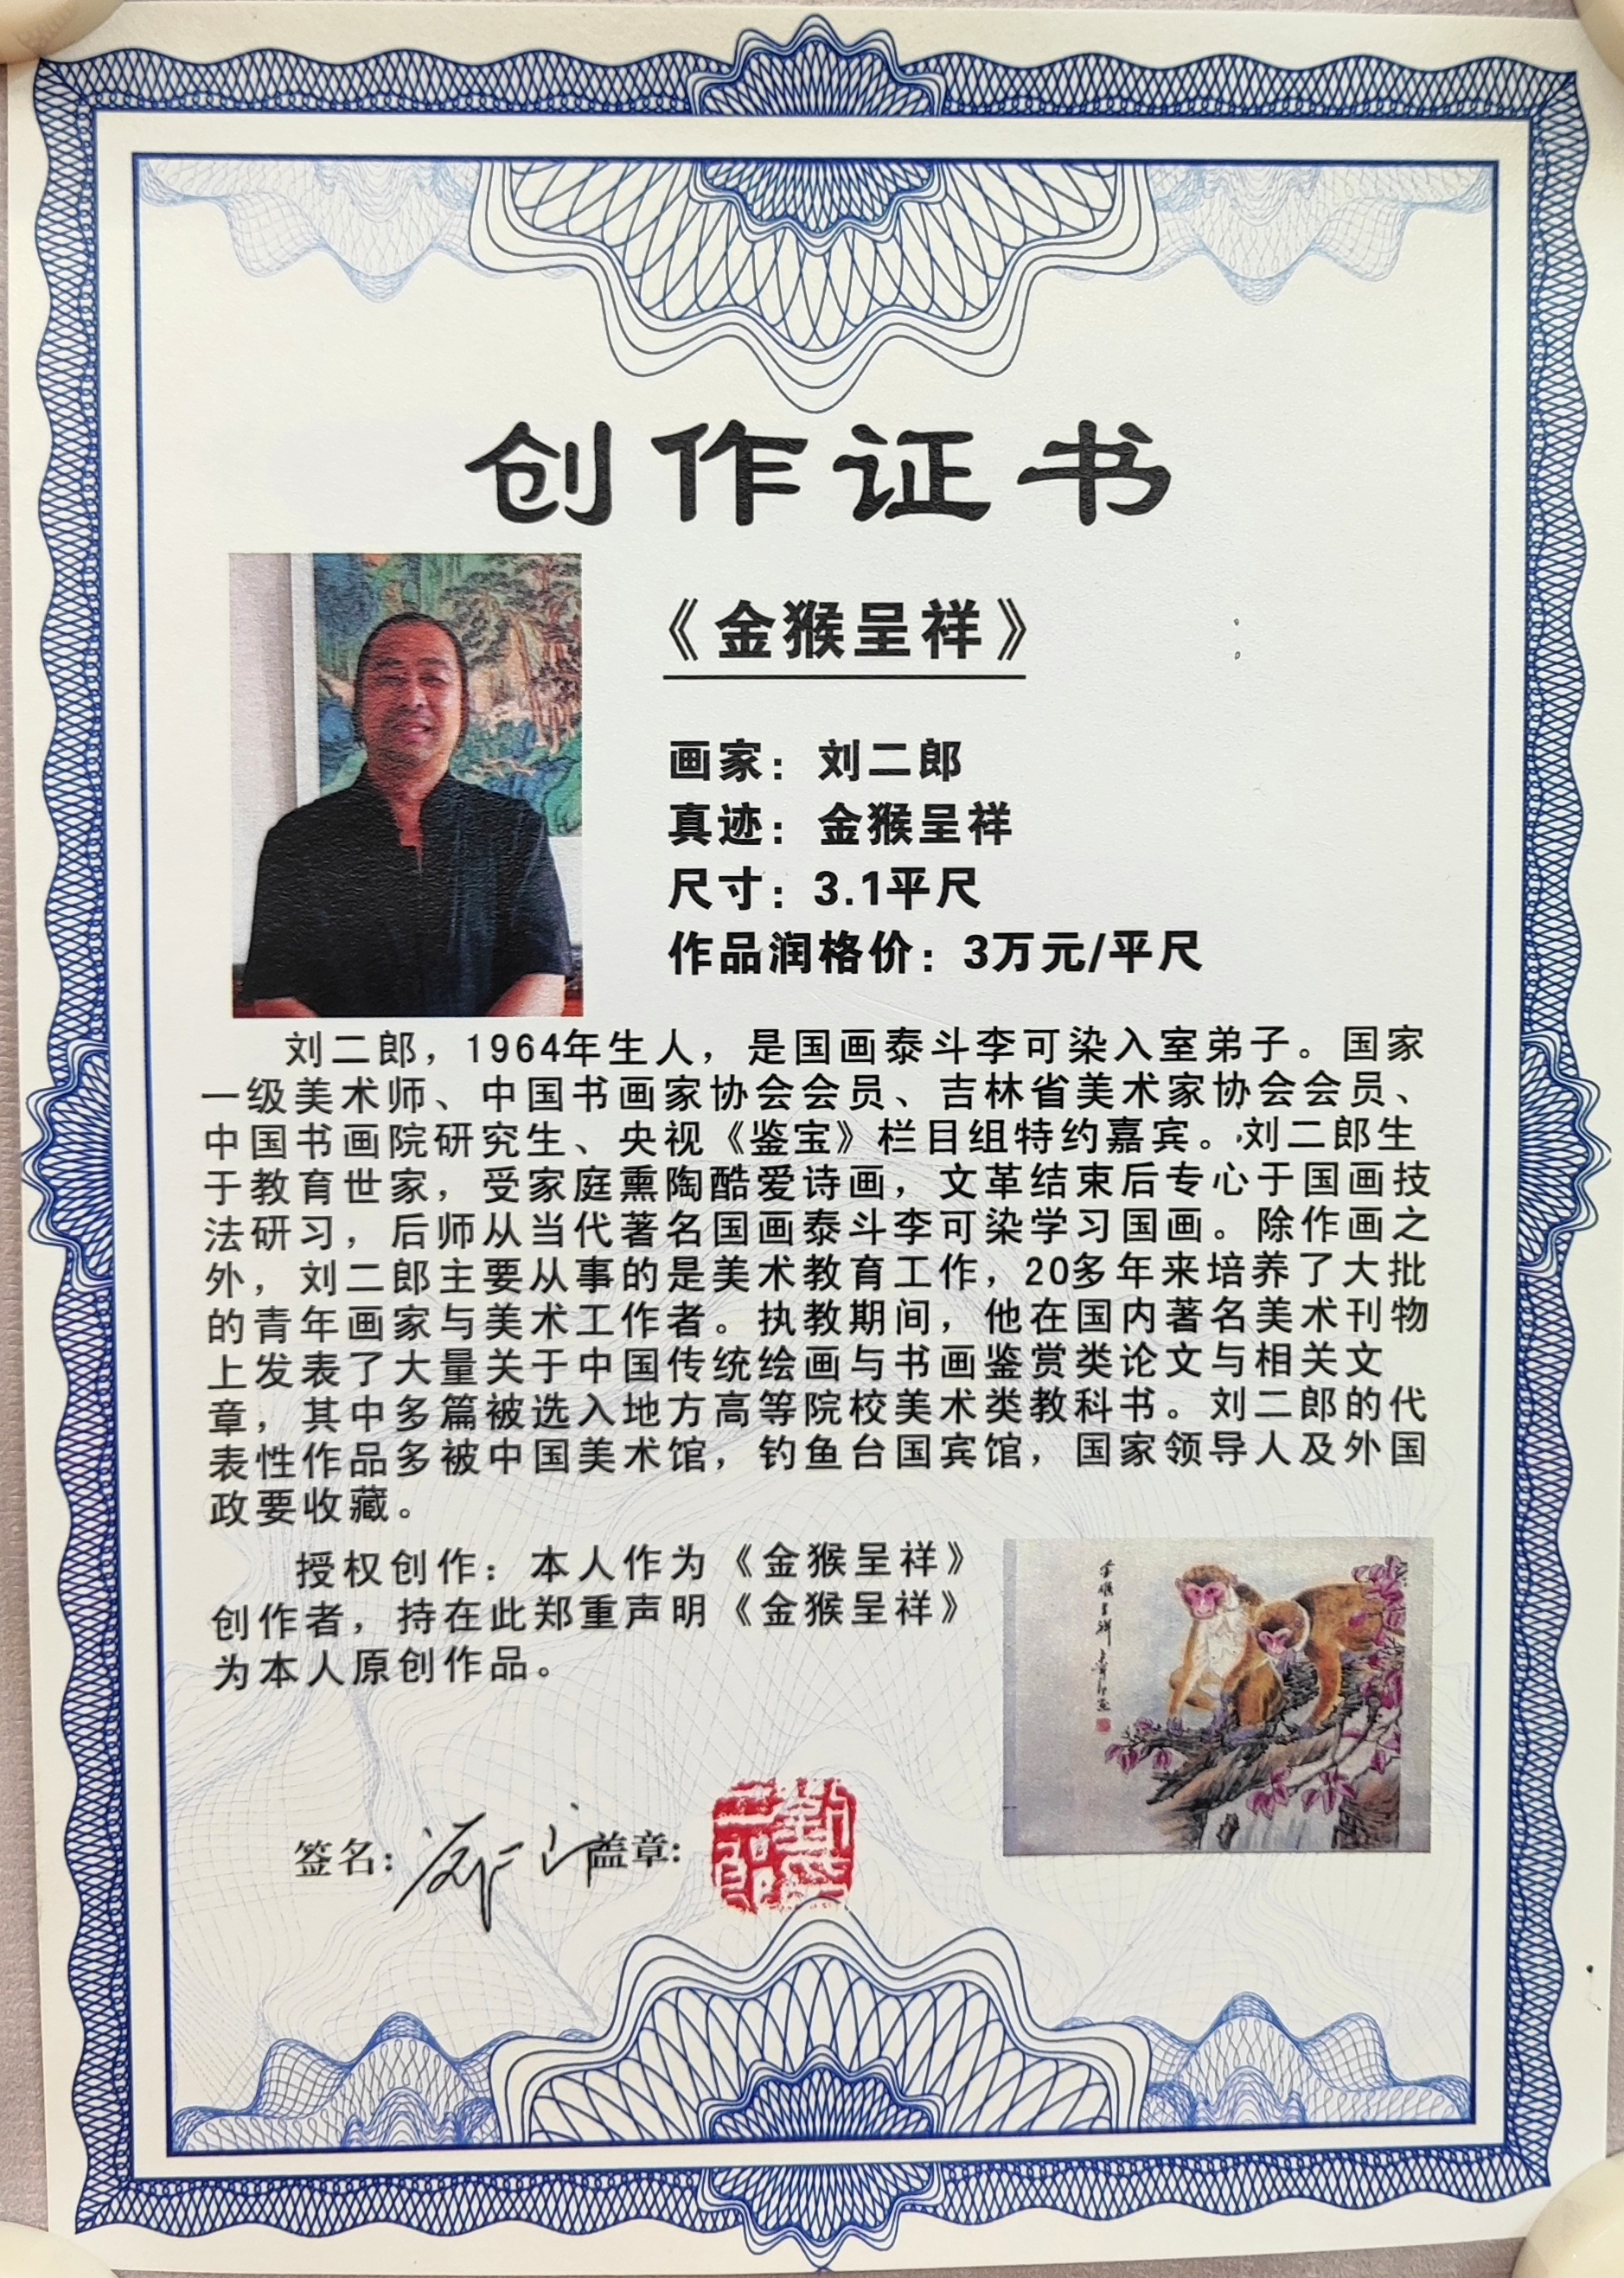 创作证书
《金猴呈祥》
画家：刘二郎
真迹：金猴呈祥
尺寸：3.1平尺
作品润格价：3万元/平尺
刘二郎，1964年生人，是国画泰斗李可染入室弟子。国家
一级美术师、中国书画家协会会员、吉林省美术家协会会员、
中国书画院研究生、央视《鉴宝》栏目组特约嘉宾。刘二郎生
于教育世家，受家庭熏陶酷爱诗画，文革结束后专心于国画技
法研习，后师从当代著名国画泰斗李可染学习国画。除作画之
外，刘二郎主要从事的是美术教育工作，20多年来培养了大批
的青年画家与美术工作者。执教期间，他在国内著名美术刊物
上发表了大量关于中国传统绘画与书画鉴赏类论文与相关文
章，其中多篇被选入地方高等院校美术类教科书。刘二郎的代
表性作品多被中国美术馆，钓鱼台国宾馆，国家领导人及外国
政要收藏。
授权创作：本人作为《金猴呈祥》
创作者，持在此郑重声明《金猴呈祥》
为本人原创作品。
金猴呈祥
签名：盖章：